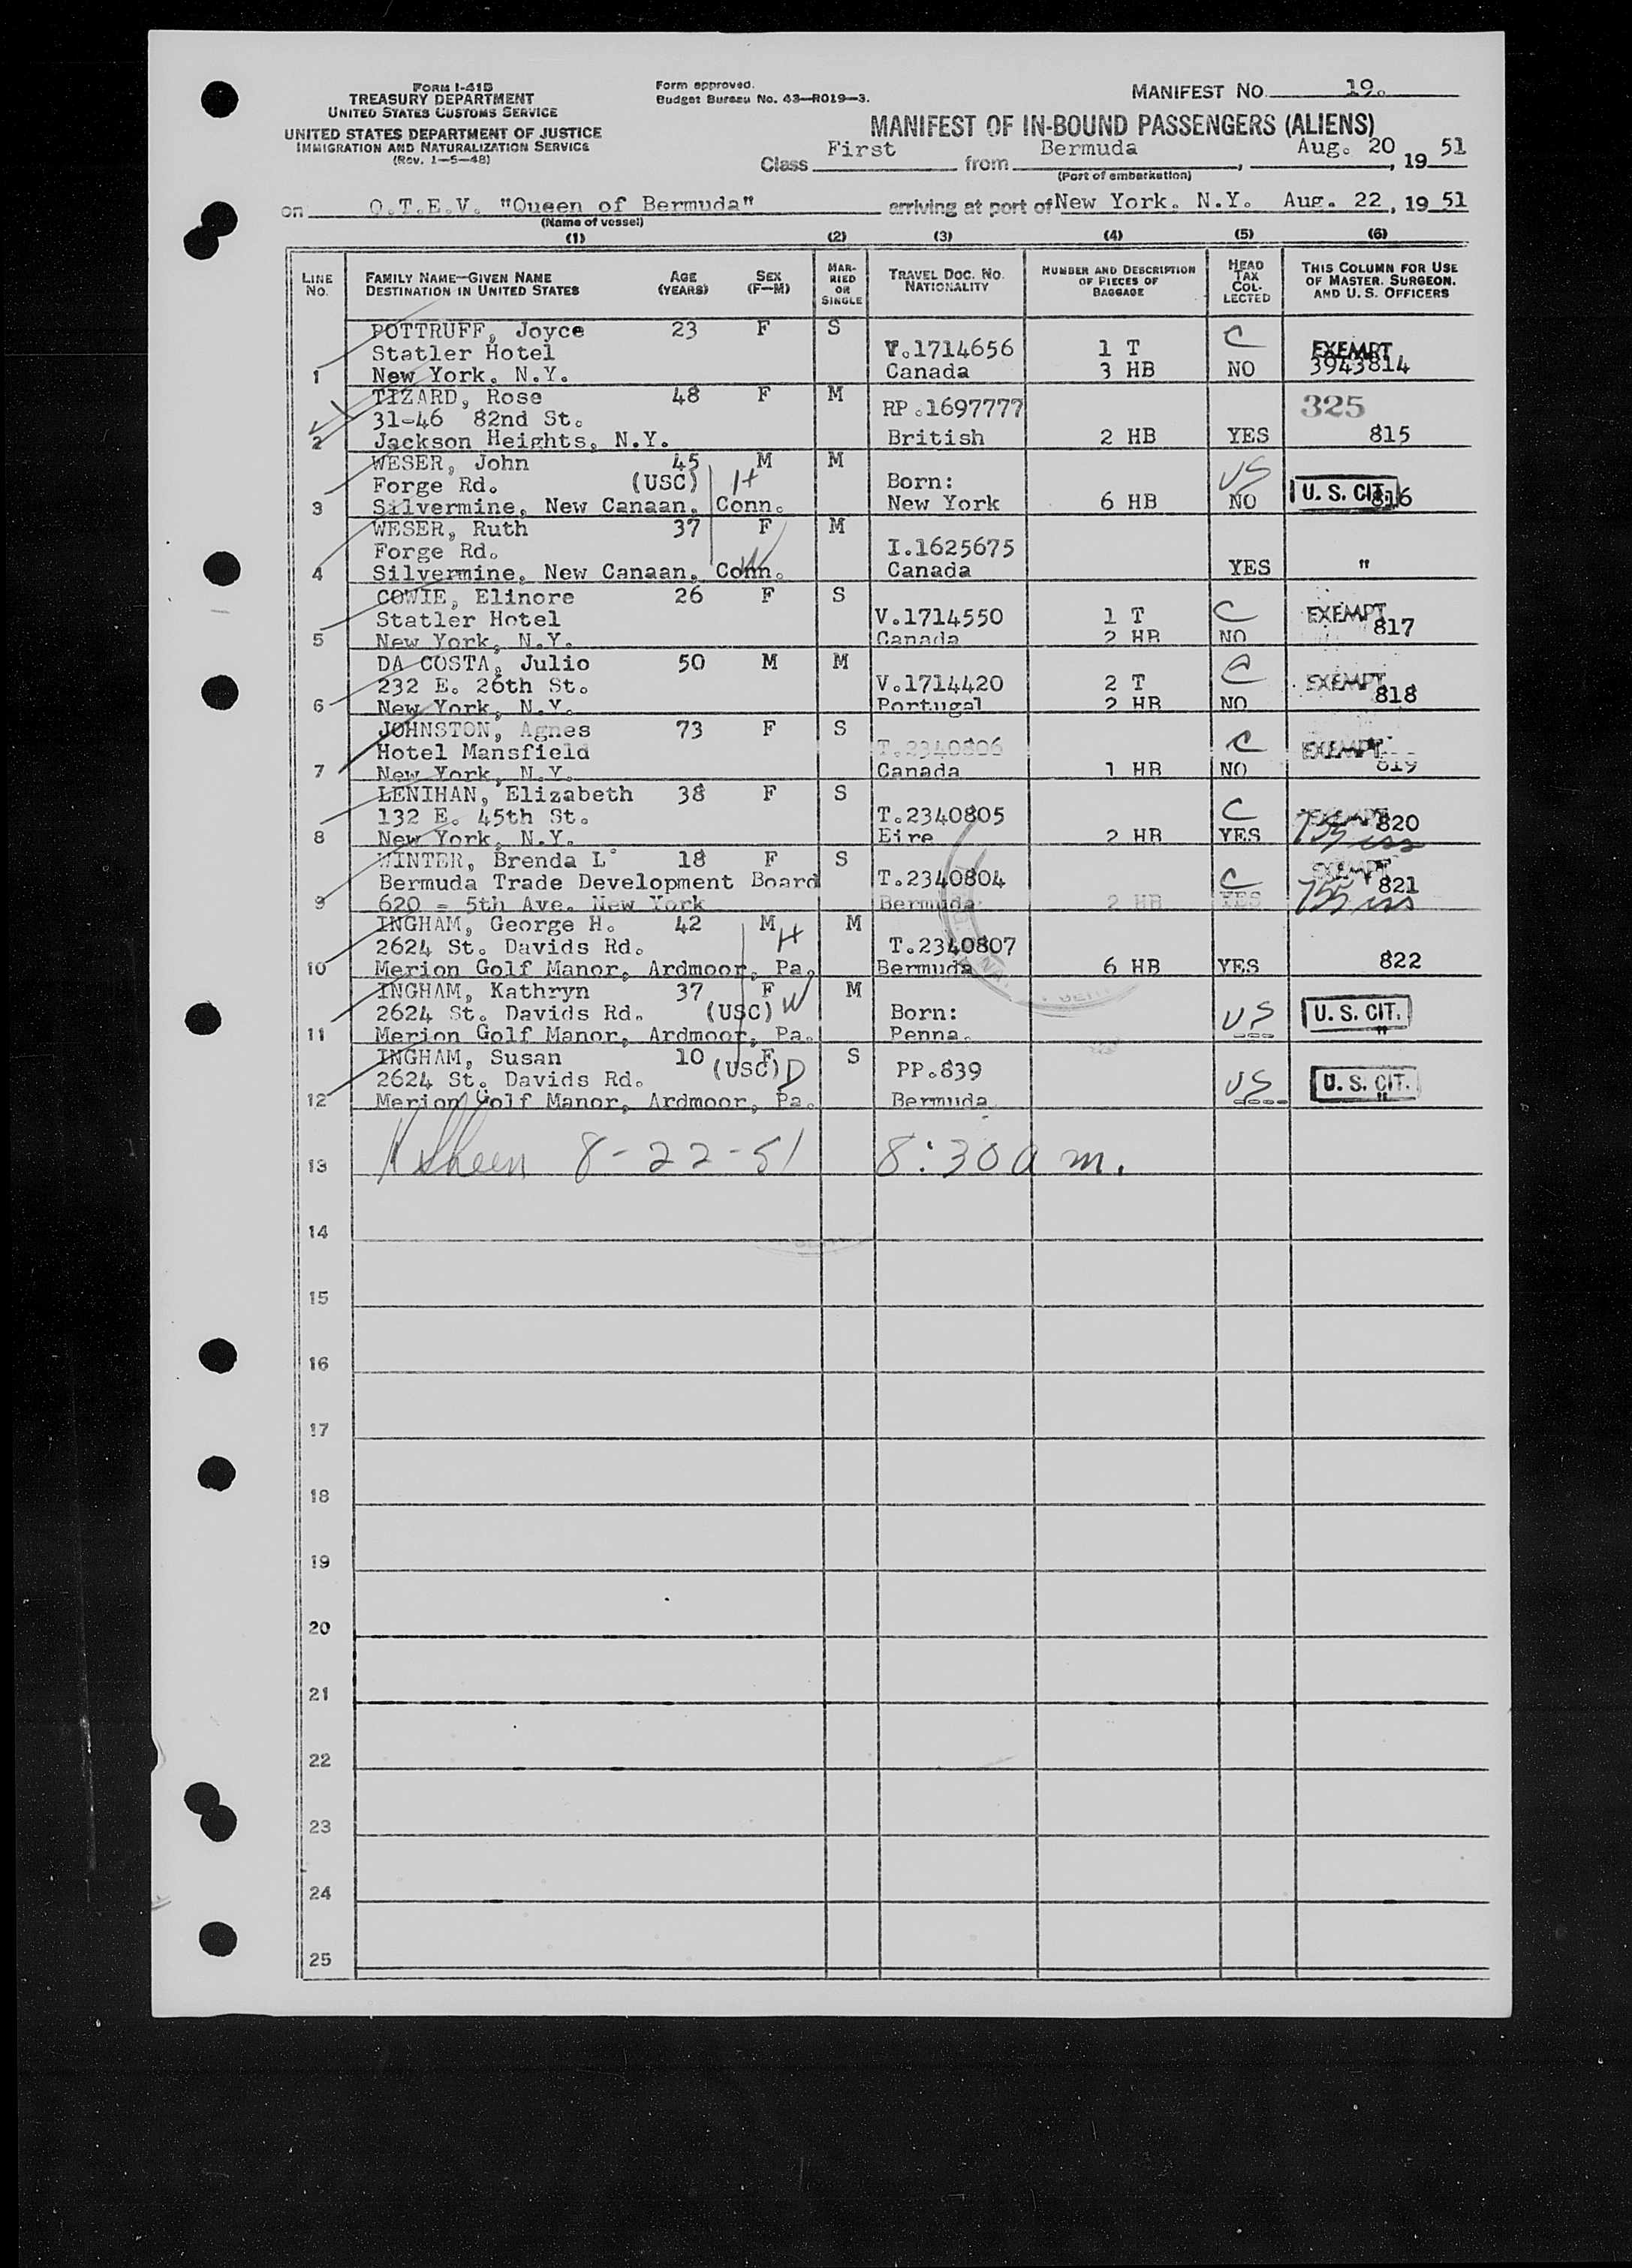 FORM I-415
TREASURY DEPARTMENT
UNITED STATES CUSTOMS SERVICE
UNITED STATES DEPARTMENT OF JUSTICE
IMMIGRATION AND NATURALIZATION SERVICE
(Rev. 1-5-48)
Form approved.
Budget Bureau No. 43-R019-3.
MANIFEST NO. 19.
MANIFEST OF IN-BOUND PASSENGERS (ALIENS)
Class First from Bermuda, Aug. 20, 19 51
(Port of embarkation)
on Q.T.E.V. "Queen of Bermuda" arriving at port of New York. N.Y. Aug. 22, 19 51
(Name of vessel)
(1) (2) (3) (4) (5) (6)
LINE NO. FAMILY NAME—GIVEN NAME DESTINATION IN UNITED STATES AGE (YEARS) SEX (F—M) MARRIED OR SINGLE TRAVEL DOC. NO. NATIONALITY NUMBER AND DESCRIPTION OF PIECES OF BAGGAGE HEAD TAX COLLECTED THIS COLUMN FOR USE OF MASTER, SURGEON, AND U. S. OFFICERS
POTTRUFF, Joyce 23 F S C
Statler Hotel V.1714656 1 T EXEMPT
1 New York. N.Y. Canada 3 HB NO 3943814
TIZARD, Rose 48 F M 325
31-46 82nd St. RP.1697777
2 Jackson Heights, N.Y. British 2 HB YES 815
WESER, John 45 M M
Forge Rd. (USC) H Born: US
3 Silvermine, New Canaan, Conn. New York 6 HB NO U. S. CIT. 816
WESER, Ruth 37 F M
Forge Rd. W I.1625675
4 Silvermine, New Canaan, Conn. Canada YES "
COWIE, Elinore 26 F S
Statler Hotel V.1714550 1 T C EXEMPT
5 New York, N.Y. Canada 2 HB NO 817
DA COSTA, Julio 50 M M C
232 E. 26th St. V.1714420 2 T EXEMPT
6 New York, N.Y. Portugal 2 HB NO 818
JOHNSTON, Agnes 73 F S
Hotel Mansfield T.2340806 C EXEMPT
7 New York, N.Y. Canada 1 HB NO 819
LENIHAN, Elizabeth 38 F S
132 E. 45th St. T.2340805 C EXEMPT 820
8 New York, N.Y. Eire 2 HB YES
WINTER, Brenda L. 18 F S EXEMPT
Bermuda Trade Development Board T.2340804 C 821
9 620 - 5th Ave. New York Bermuda 2 HB YES
INGHAM, George H. 42 M M
2624 St. Davids Rd. H T.2340807
10 Merion Golf Manor, Ardmoor, Pa. Bermuda 6 HB YES 822
INGHAM, Kathryn 37 F M
2624 St. Davids Rd. (USC) W Born: US U. S. CIT.
11 Merion Golf Manor, Ardmoor, Pa. Penna. --- "
INGHAM, Susan 10 F S
2624 St. Davids Rd. (USC) D PP.839 US U. S. CIT.
12 Merion Golf Manor, Ardmoor, Pa. Bermuda ---- "
13 8-22-51 8:30 a m.
14
15
16
17
18
19
20
21
22
23
24
25